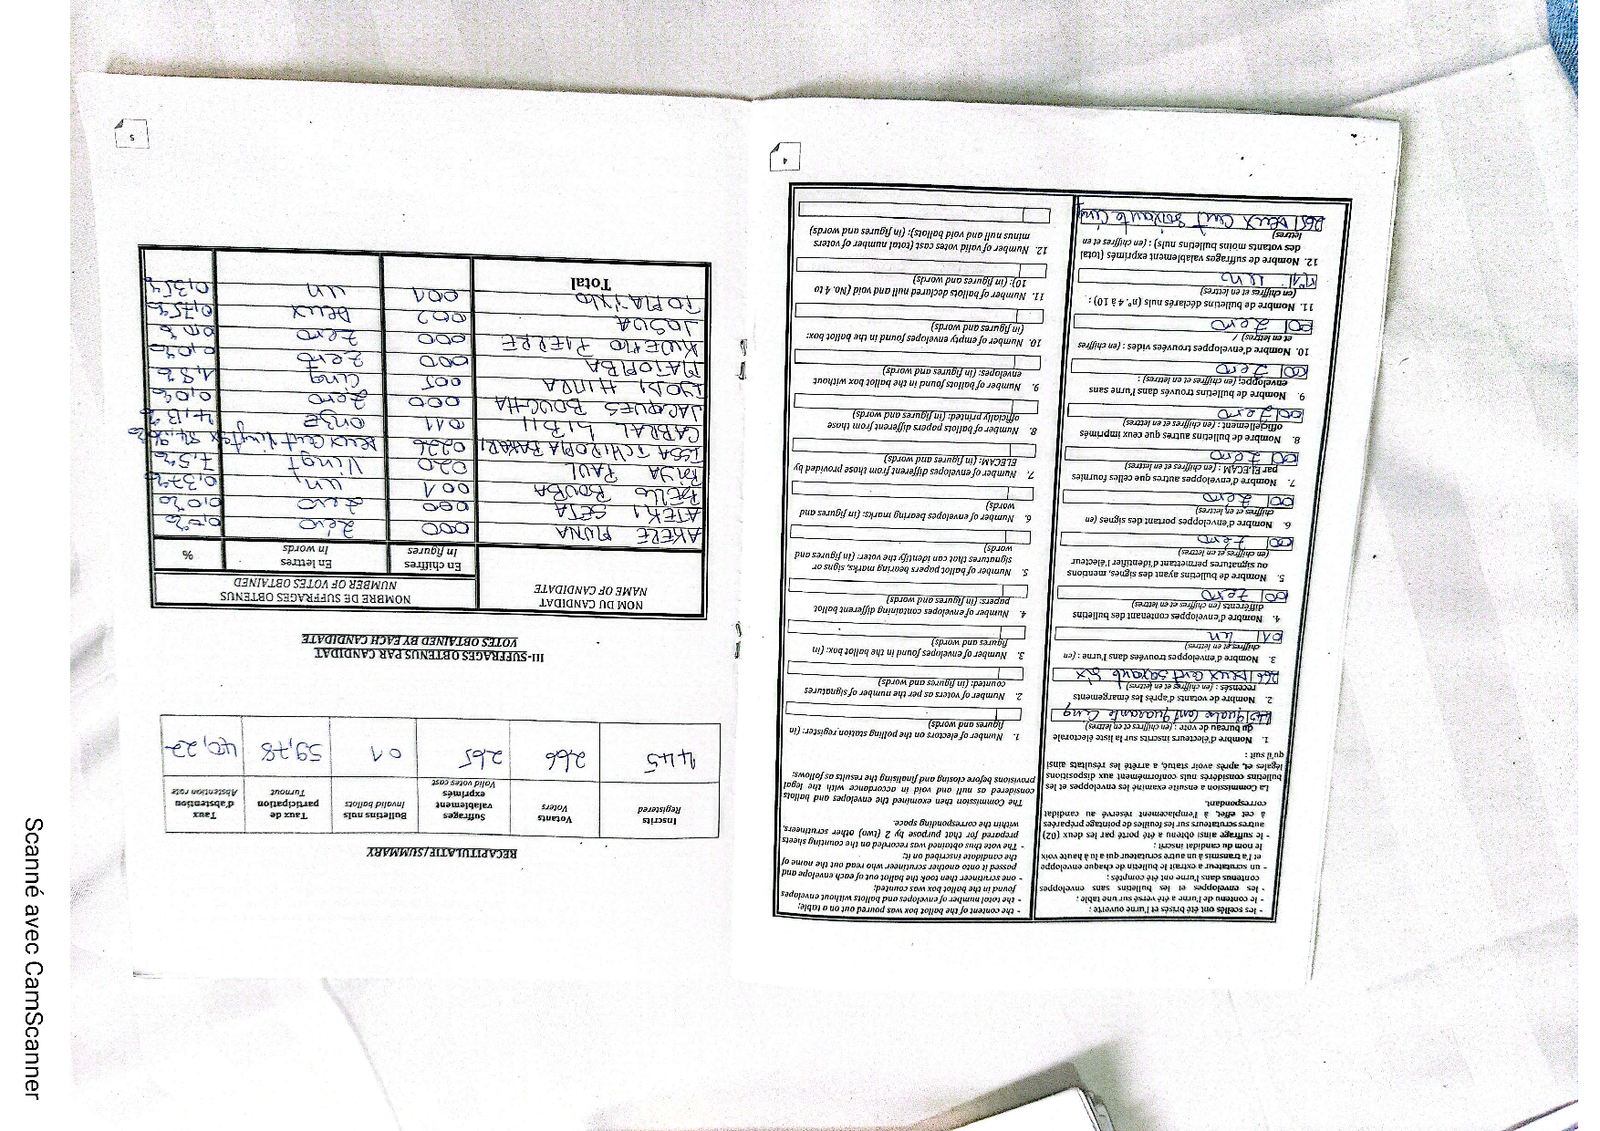 - les scellés ont été brisés et l'urne ouverte ;
- le contenu de l'urne a été versé sur une table ;
- les enveloppes et les bulletins sans enveloppes
contenus dans l'urne ont été comptés ;
- un scrutateur a extrait le bulletin de chaque enveloppe
et l'a transmis à un autre scrutateur qui a lu à haute voix
le nom du candidat inscrit ;
- le suffrage ainsi obtenu a été porté par les deux (02)
autres scrutateurs sur les feuilles de pointage préparées
à cet effet, à l'emplacement réservé au candidat
correspondant.
La Commission a ensuite examiné les enveloppes et les
bulletins considérés nuls conformément aux dispositions
légales et, après avoir statué, a arrêté les résultats ainsi
qu'il suit :
1. Nombre d'électeurs inscrits sur la liste électorale
du bureau de vote : (en chiffres et en lettres)
445 quatre cent quarante cinq
2. Nombre de votants d'après les émargements
recensés : (en chiffres et en lettres)
266 Deux cent soixante six
3. Nombre d'enveloppes trouvées dans l'urne : (en
chiffres et en lettres)
01 un
4. Nombre d'enveloppes contenant des bulletins
différents (en chiffres et en lettres)
00 zero
5. Nombre de bulletins ayant des signes, mentions
ou signatures permettant d'identifier l'électeur
(en chiffres et en lettres)
00 zero
6. Nombre d'enveloppes portant des signes (en
chiffres et en lettres)
00 zero
7. Nombre d'enveloppes autres que celles fournies
par ELECAM : (en chiffres et en lettres)
00 zero
8. Nombre de bulletins autres que ceux imprimés
officiellement : (en chiffres et en lettres)
00 zero
9. Nombre de bulletins trouvés dans l'urne sans
enveloppe; (en chiffres et en lettres) :
00 zero
10. Nombre d'enveloppes trouvées vides : (en chiffres
et en lettres) /
00 zero
11. Nombre de bulletins déclarés nuls (n° 4 à 10) :
(en chiffres et en lettres)
01 un
12. Nombre de suffrages valablement exprimés (total
des votants moins bulletins nuls) : (en chiffres et en
lettres)
265 Deux cent soixante cinq
- the content of the ballot box was poured out on a table;
- the total number of envelopes and ballots without envelopes
found in the ballot box was counted;
- one scrutineer then took the ballot out of each envelope and
passed it onto another scrutineer who read out the name of
the candidate inscribed on it;
- The vote thus obtained was recorded on the counting sheets
prepared for that purpose by 2 (two) other scrutineers,
within the corresponding space.
The Commission then examined the envelopes and ballots
considered as null and void in accordance with the legal
provisions before closing and finalising the results as follows:
1. Number of electors on the polling station register: (in
figures and words)
2. Number of voters as per the number of signatures
counted: (in figures and words)
3. Number of envelopes found in the ballot box: (in
figures and words)
4. Number of envelopes containing different ballot
papers: (in figures and words)
5. Number of ballot papers bearing marks, signs or
signatures that can identify the voter: (in figures and
words)
6. Number of envelopes bearing marks: (in figures and
words
7. Number of envelopes different from those provided by
ELECAM: (in figures and words)
8. Number of ballots papers different from those
officially printed: (in figures and words)
9. Number of ballots found in the ballot box without
envelopes: (in figures and words)
10. Number of empty envelopes found in the ballot box:
(in figures and words)
11. Number of ballots declared null and void (No. 4 to
10): (in figures and words)
12. Number of valid votes cast (total number of voters
minus null and void ballots): (in figures and words)
4
RECAPITULATIF/SUMMARY
Inscrits Registered Votants Voters Suffrages valablement exprimés Valid votes cast Bulletins nuls Invalid ballots Taux de participation Turnout Taux d'abstention Abstention rate
445 266 265 01 59,78 40,22
III- SUFFRAGES OBTENUS PAR CANDIDAT
VOTES OBTAINED BY EACH CANDIDATE
NOM DU CANDIDAT NOMBRE DE SUFFRAGES OBTENUS
NAME OF CANDIDATE NUMBER OF VOTES OBTAINED
En chiffres En lettres %
In figures In words
AKERE MUNA 000 Zéro 0,0%
ATEKI SETA 000 zero 0,0%
BELLO BOUBA 001 un 0,37%
BIYA PAUL 020 Vingt 7,5%
ISSA TCHIROMA BAKARI 0226 Deux cent vingt six 84,9%
CABRAL LIBII 011 onze 4,13%
JACQUES BOUGHA 000 zero 0,0%
IYODI HIIRA 005 cinq 1,8%
MATOMBA 000 zero 0,0%
KWEMO PIERRE 000 zero 0,0%
JOSUA 002 Deux 0,75%
TOMAÏNO 001 un 0,35%
Total
5
Scanné avec CamScanner